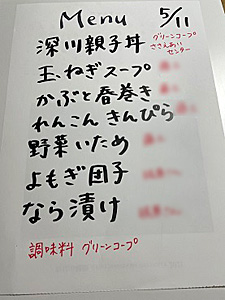 Menu 5/11
深川親子丼 グリーンコープ
ささえあい
センター
玉ねぎスープ
かぶと春巻き
れんこんきんぴら
野菜いため
よもぎ団子
なら漬け
調味料 グリーンコープ